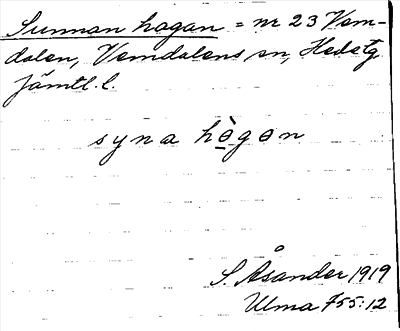 Sunnan hagan = nr 23 Vem-
dalen, Vemdalens sn, Hedetg
Jämtl. l.
syna hɵ̀gɵn
S. Åsander 1919
Ulma 755:12